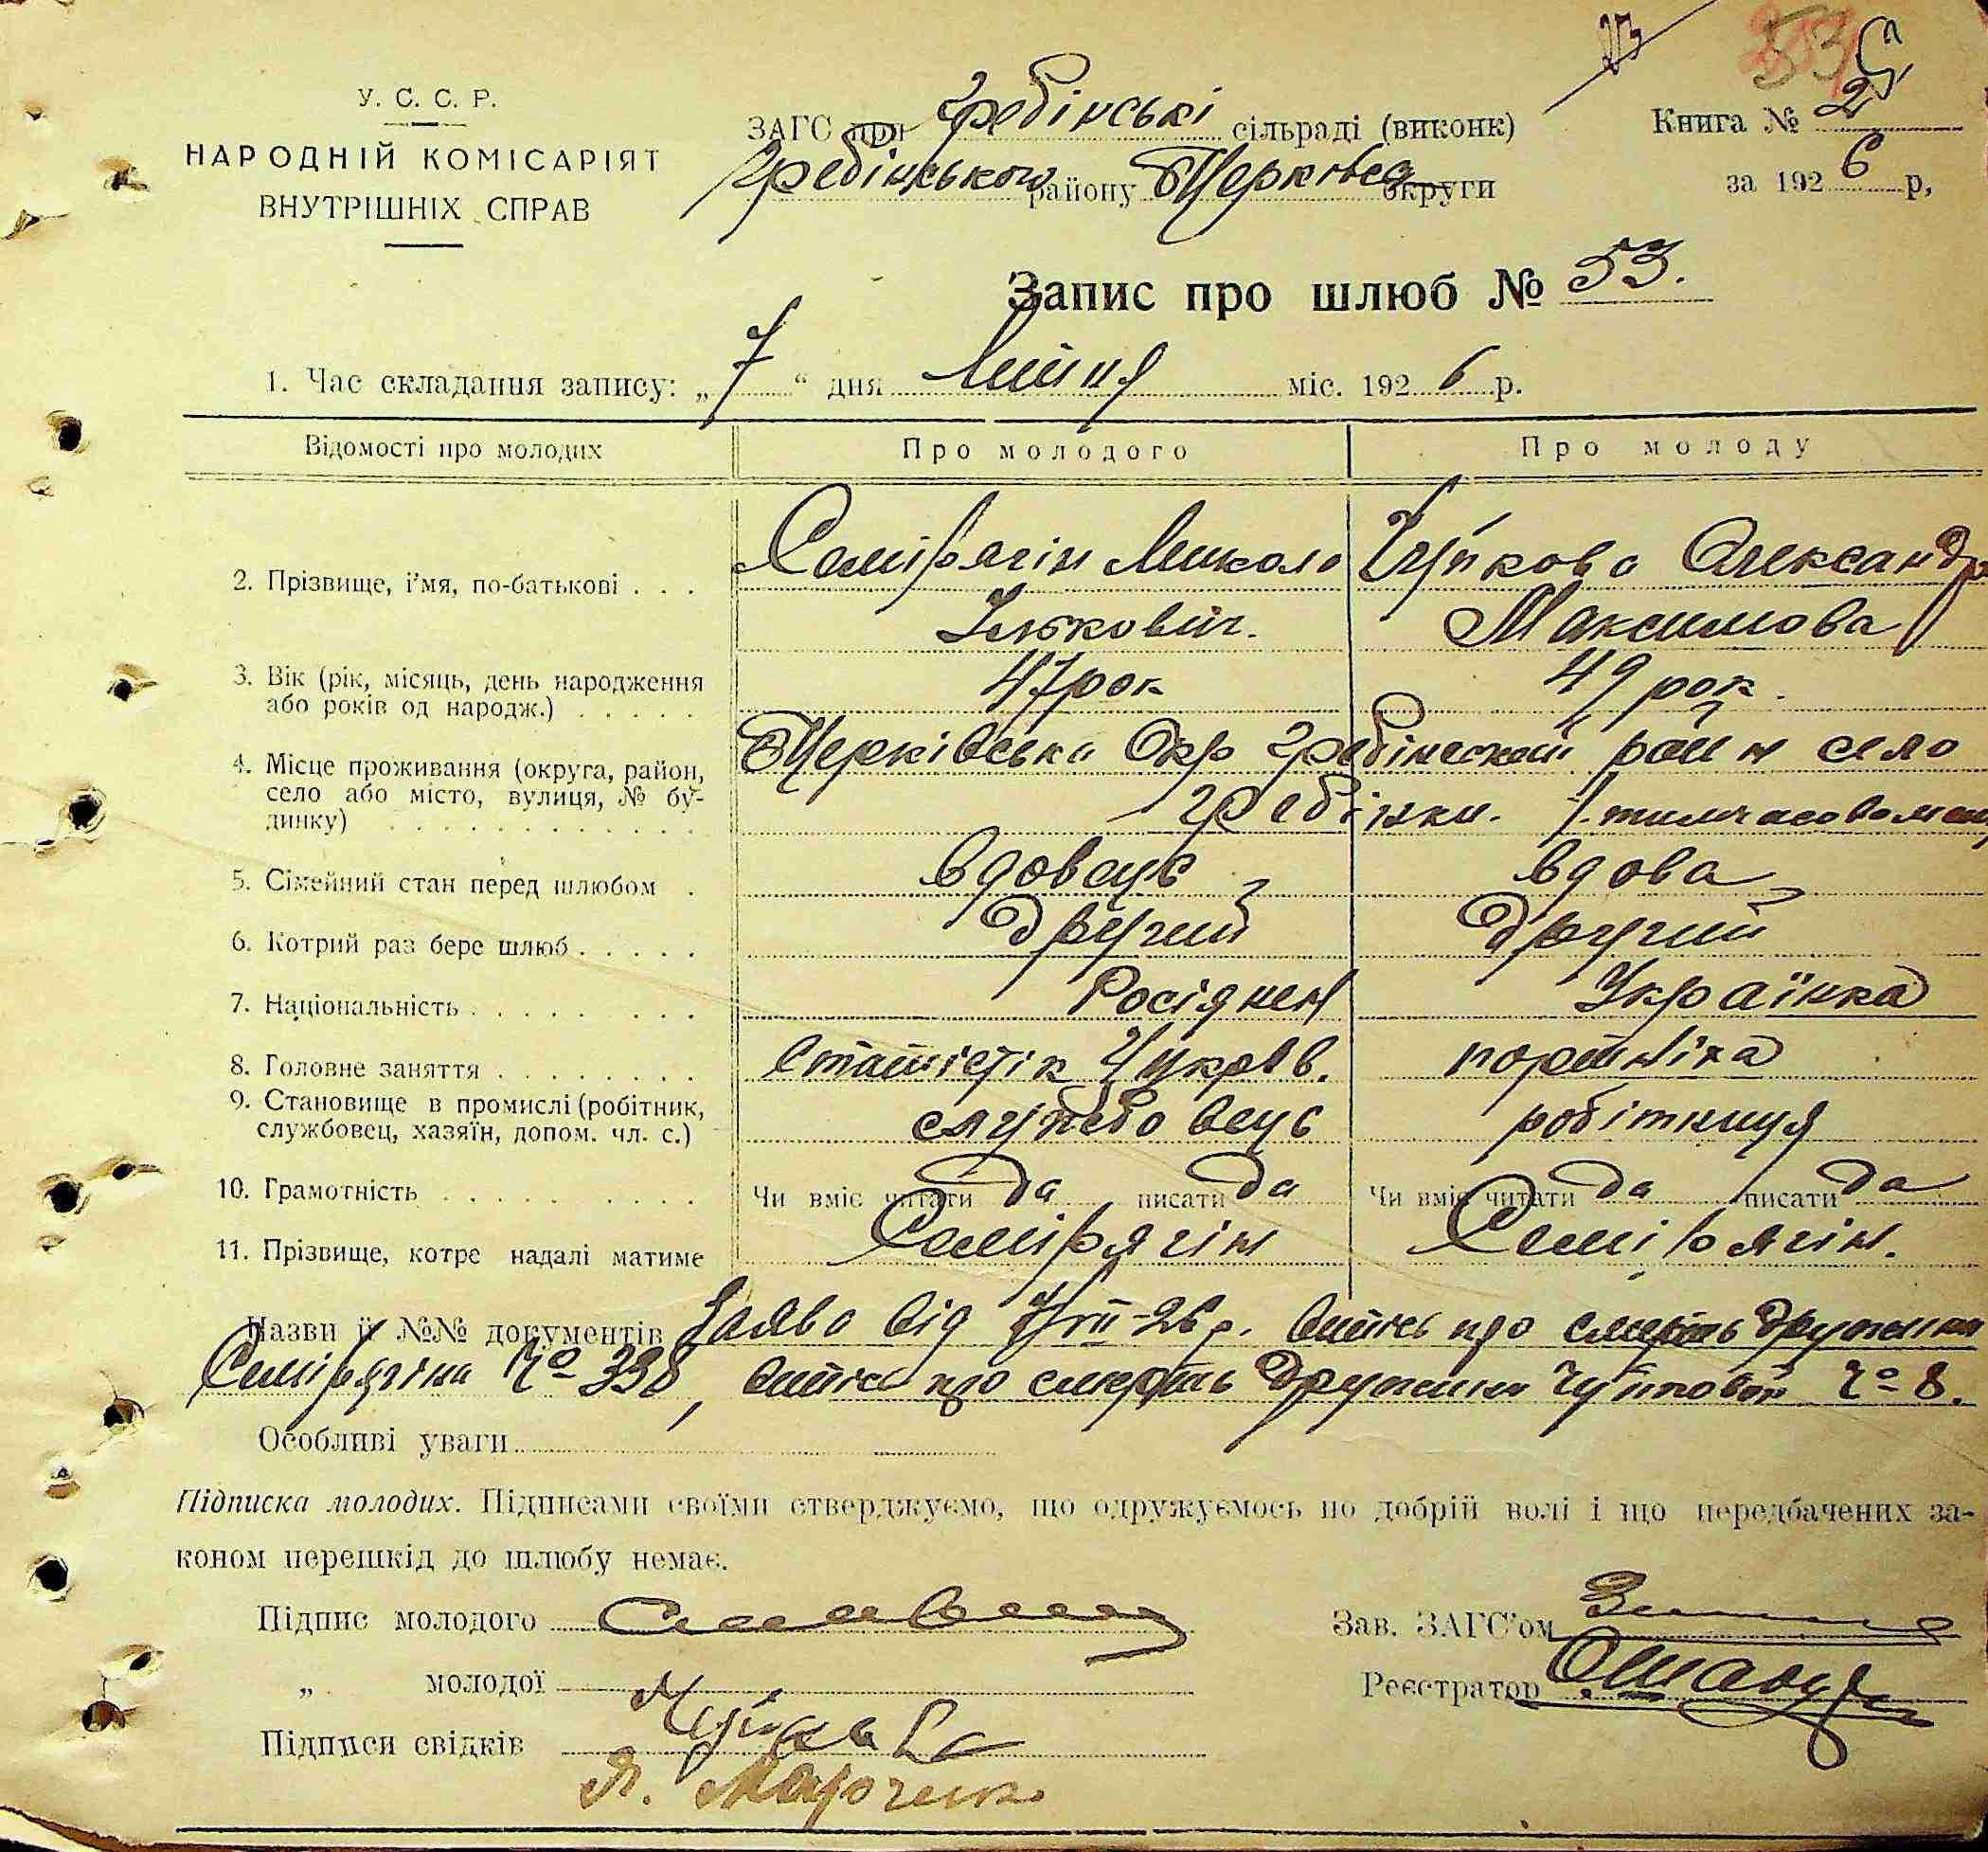 У. С. С. Р.
НАРОДНІЙ КОМІСАРІЯТ
ВНУТРІШНІХ СПРАВ
ЗАГС при Гребінські сільраді (виконк)
Гребінського району Б Церківсо округи
Книга № 2
за 1926 р,
Запис про шлюб № 53.
1. Час складання запису: „7“ дня Липня міс. 1926 р.
Відомості про молодих
Про молодого
Про молоду
2. Прізвище, і'мя, по-батькові . . .
Семірягін Микола
Чуйкова Олександр
Ількович.
Максимова
3. Вік (рік, місяць, день народження
або років од народж.) . . . . .
47 рок
49 рок.
4. Місце проживання (округа, район,
село або місто, вулиця, № бу-
динку) . . . . . . . . . . . .
БЦерківська Окр Гребінський район село
Гребінки.
5. Сімейний стан перед шлюбом .
вдовець
вдова
6. Котрий раз бере шлюб . . . . .
другий
другий
7. Національність . . . . . . . . .
Росіянен
Українка
8. Головне заняття . . . . . . . .
Статистік Цукров.
портніха
9. Становище в промислі (робітник,
службовец, хазяїн, допом. чл. с.)
службовець
робітниця
10. Грамотність . . . . . . . . . .
Чи вміє читати да писати да
Чи вміє читати да писати да
11. Прізвище, котре надалі матиме
Семірягін
Семірягін.
Назви й №№ документів Заява від 7/VII-26 р. Витяг про смерть дружини
Семірягіна № 338, витяг про смерть дружини Чуйковой № 8.
Особливі уваги
Підписка молодих. Підписами своїми стверджуємо, що одружуємось по добрій волі і що передбачених за-
коном перешкід до шлюбу немає.
Підпис молодого
Зав. ЗАГС'ом
„ молодої
Реєстратор
Чуйкова
Підписи свідків
Я. Марченко